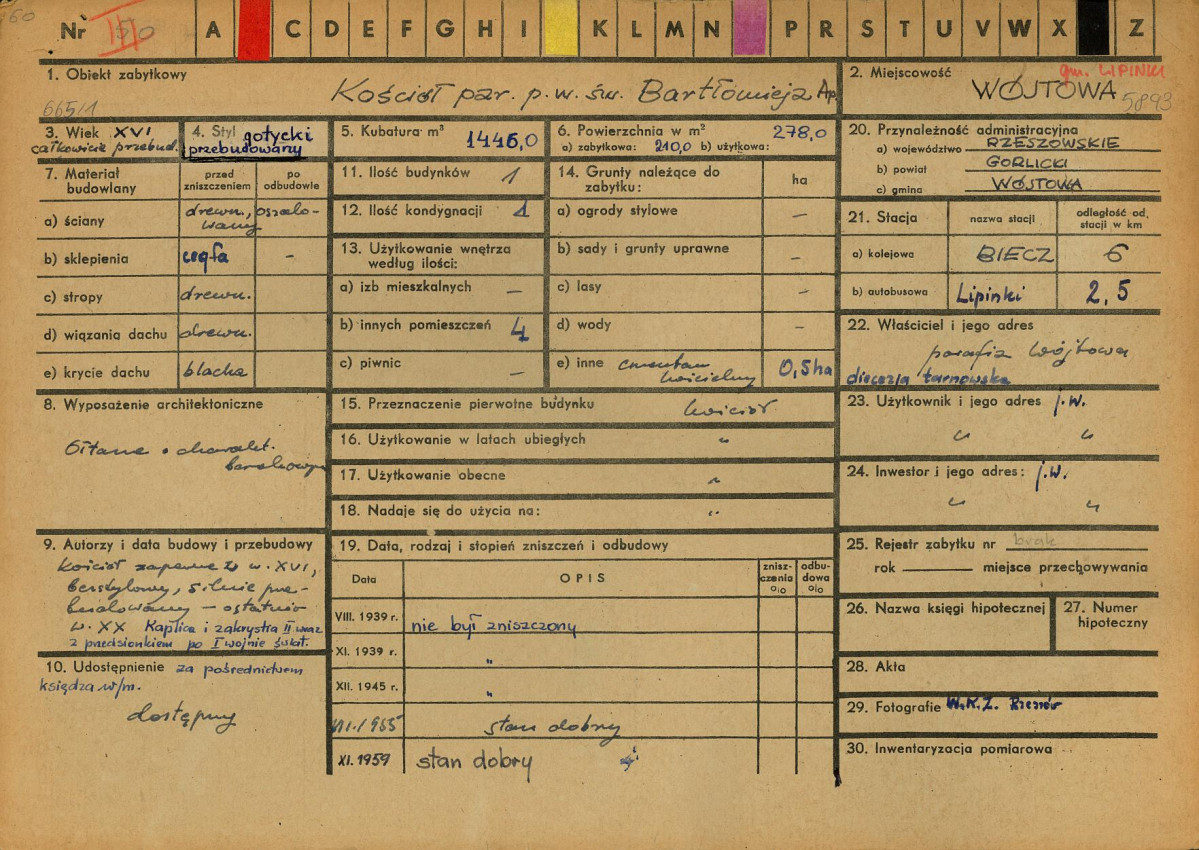 Nr III
A C D E F G H I K L M N P R S T U V W X Z
1. Obiekt zabytkowy
665/1
Kościół par. p.w. św. Bartłomieja Ap.
2. Miejscowość
gm. LIPINKI
WÓJTOWA
5893
3. Wiek XVI
całkowicie przebud.
4. Styl gotycki
przebudowany
5. Kubatura m³
1446,0
6. Powierzchnia w m² 278,0
a) zabytkowa: 210,0 b) użytkowa:
7. Materiał budowlany
przed zniszczeniem
po odbudowie
a) ściany drewn., oszalowany
b) sklepienia cegła –
c) stropy drewn.
d) wiązania dachu drewn.
e) krycie dachu blacha
8. Wyposażenie architektoniczne
Ołtarze o charakt.
barokowym
9. Autorzy i data budowy i przebudowy
Kościół zapewne z w. XVI,
bezstylowy, silnie prze-
budowany – ostatnio
w. XX Kaplica i zakrystia II wraz
z przedsionkiem po I wojnie świat.
10. Udostępnienie za pośrednictwem
księdza w/m.
dostępny
11. Ilość budynków 1
12. Ilość kondygnacji 1
13. Użytkowanie wnętrza
według ilości:
a) izb mieszkalnych –
b) innych pomieszczeń 4
c) piwnic –
14. Grunty należące do
zabytku: ha
a) ogrody stylowe –
b) sady i grunty uprawne –
c) lasy –
d) wody –
e) inne cmentarz
kościelny 0,5ha
15. Przeznaczenie pierwotne budynku kościół
16. Użytkowanie w latach ubiegłych "
17. Użytkowanie obecne "
18. Nadaje się do użycia na: "
19. Data, rodzaj i stopień zniszczeń i odbudowy
Data OPIS znisz-czenia o/o odbu-dowa o/o
VIII. 1939 r. nie był zniszczony
XI. 1939 r. "
XII. 1945 r. "
VII./1955 stan dobry
XI. 1959 stan dobry
20. Przynależność administracyjna
a) województwo RZESZOWSKIE
b) powiat GORLICKI
c) gmina WÓJTOWA
21. Stacja
nazwa stacji
odległość od, stacji w km
a) kolejowa BIECZ 6
b) autobusowa Lipinki 2,5
22. Właściciel i jego adres
parafia Wójtowa
diecezja tarnowska
23. Użytkownik i jego adres j.w.
" "
24. Inwestor i jego adres: j.w.
" "
25. Rejestr zabytku nr brak
rok miejsce przechowywania
26. Nazwa księgi hipotecznej
27. Numer
hipoteczny
28. Akta
29. Fotografie W.K.Z. Rzeszów
30. Inwentaryzacja pomiarowa